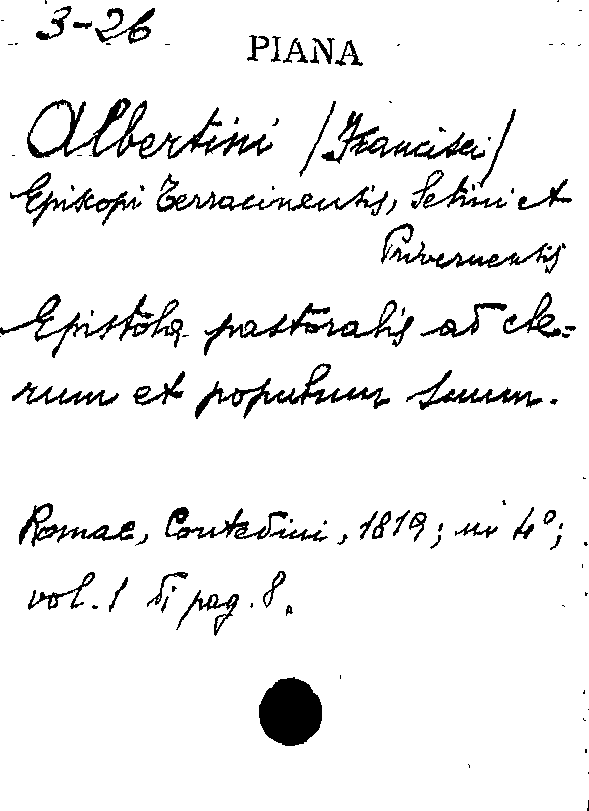 3-26
PIANA
Albertini /Francisci/
Episcopi Terracinensis, Setini et
Privernensis
Epistola pastoralis ad cle-
rum et populum suum.
Romae, Contedini, 1819; in 4°;
vol. 1 di pag. 8.